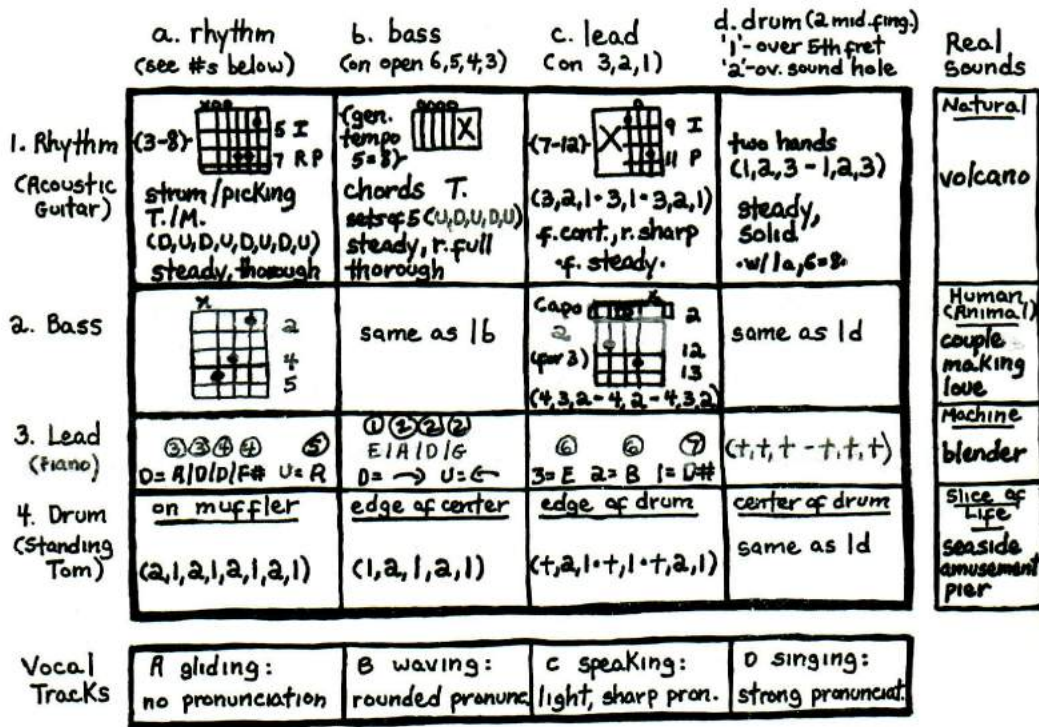 a. rhythm
(see #s below)
b. bass
(on open 6,5,4,3)
c. lead
(on 3,2,1)
d. drum (2 mid.fing.)
'1'- over 5th fret
'2'-ov. sound hole
Real
Sounds
1. Rhythm
(Acoustic
Guitar)
(3-8)
xoo
5 I
7 RP
strum/picking
T./M.
(D,U,D,U,D,U,D,U)
steady, thorough
(gen.
tempo
5=8)
oooo
X
chords T.
sets of 5 (U,D,U,D,U)
steady, r. full
thorough
(7-12)
o
X
9 I
11 P
(3,2,1·3,1·3,2,1)
f. cont., r. sharp
·f. steady.
two hands
(1,2,3 - 1,2,3)
steady,
solid
·w/1a, 6=8·
Natural
volcano
2. Bass
x
2
4
5
same as 1b
Capo
2
(for 3)
x
2
12
13
(4,3,2-4,2-4,3,2)
same as 1d
Human
(Animal)
couple
making
love
3. Lead
(Piano)
3 3 4 4 5
D= A/D/D/F# U= A
1 2 2 2
E/A/D/G
D= → U= ←
6 6 7
3=E 2=B 1=D#
(t,t,t - t,t,t)
Machine
blender
4. Drum
(Standing
Tom)
on muffler
(2,1,2,1,2,1,2,1)
edge of center
(1,2,1,2,1)
edge of drum
(t,2,1·t,1·t,2,1)
center of drum
same as 1d
Slice of
Life
seaside
amusement
pier
Vocal
Tracks
A gliding:
no pronunciation
B waving:
rounded pronunc.
C speaking:
light, sharp pron.
D singing:
strong pronunciat.